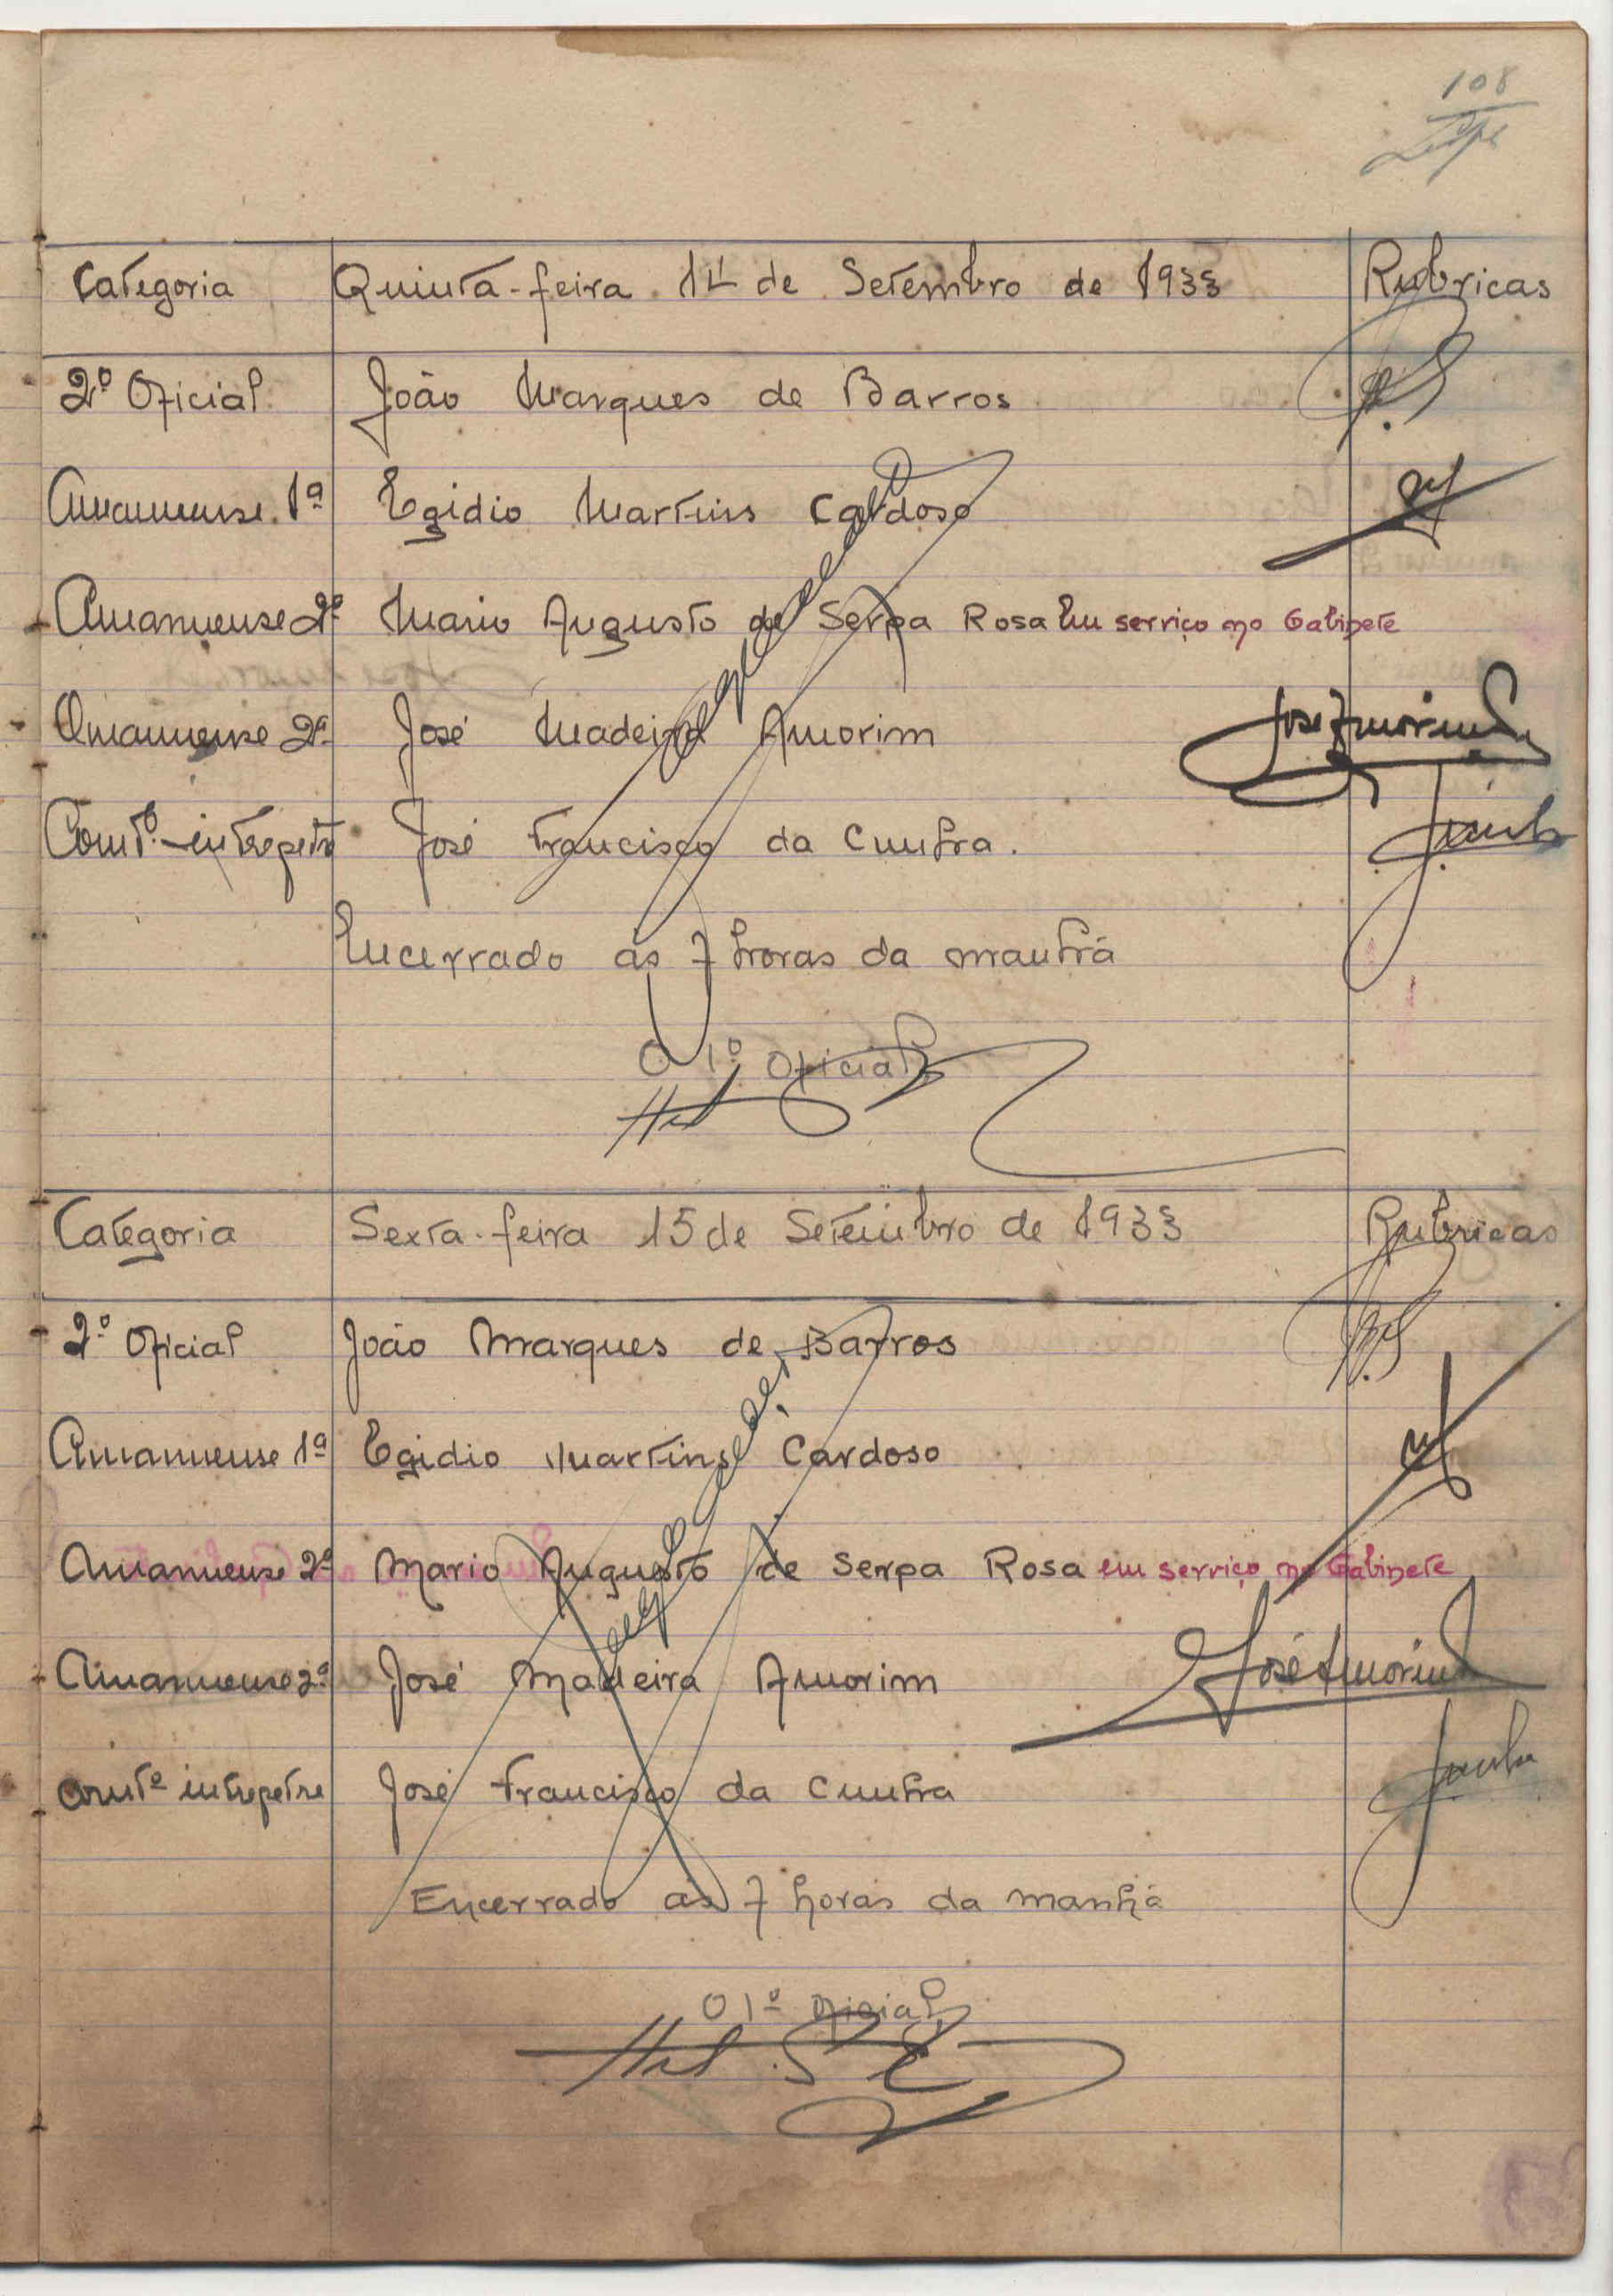 108
Categoria Quinta-feira 14 de Setembro de 1933 Rubricas
2º Oficial João Marques de Barros
Amanuense 1ª Egidio Martins Cardoso
Amanuense 2ª Mario Augusto de Serpa Rosa Em serviço no Gabinete
Amanuense 2ª José Madeira Amorim José Amorim
Contº-intrepetre José Francisco da Cunha. JCunha
Encerrado ás 7 horas da manhã
O 1º Oficial
Categoria Sexta-feira 15 de Setembro de 1933 Rubricas
2º Oficial João Marques de Barros
Amanuense 1ª Egidio Martins Cardoso
Amanuense 2ª Mario Augusto de Serpa Rosa em serviço no Gabinete
Amanuense 2ª José Madeira Amorim José Amorim
contº intrepetre José Francisco da Cunha JCunha
Encerrado ás 7 horas da manhã
O 1º Oficial